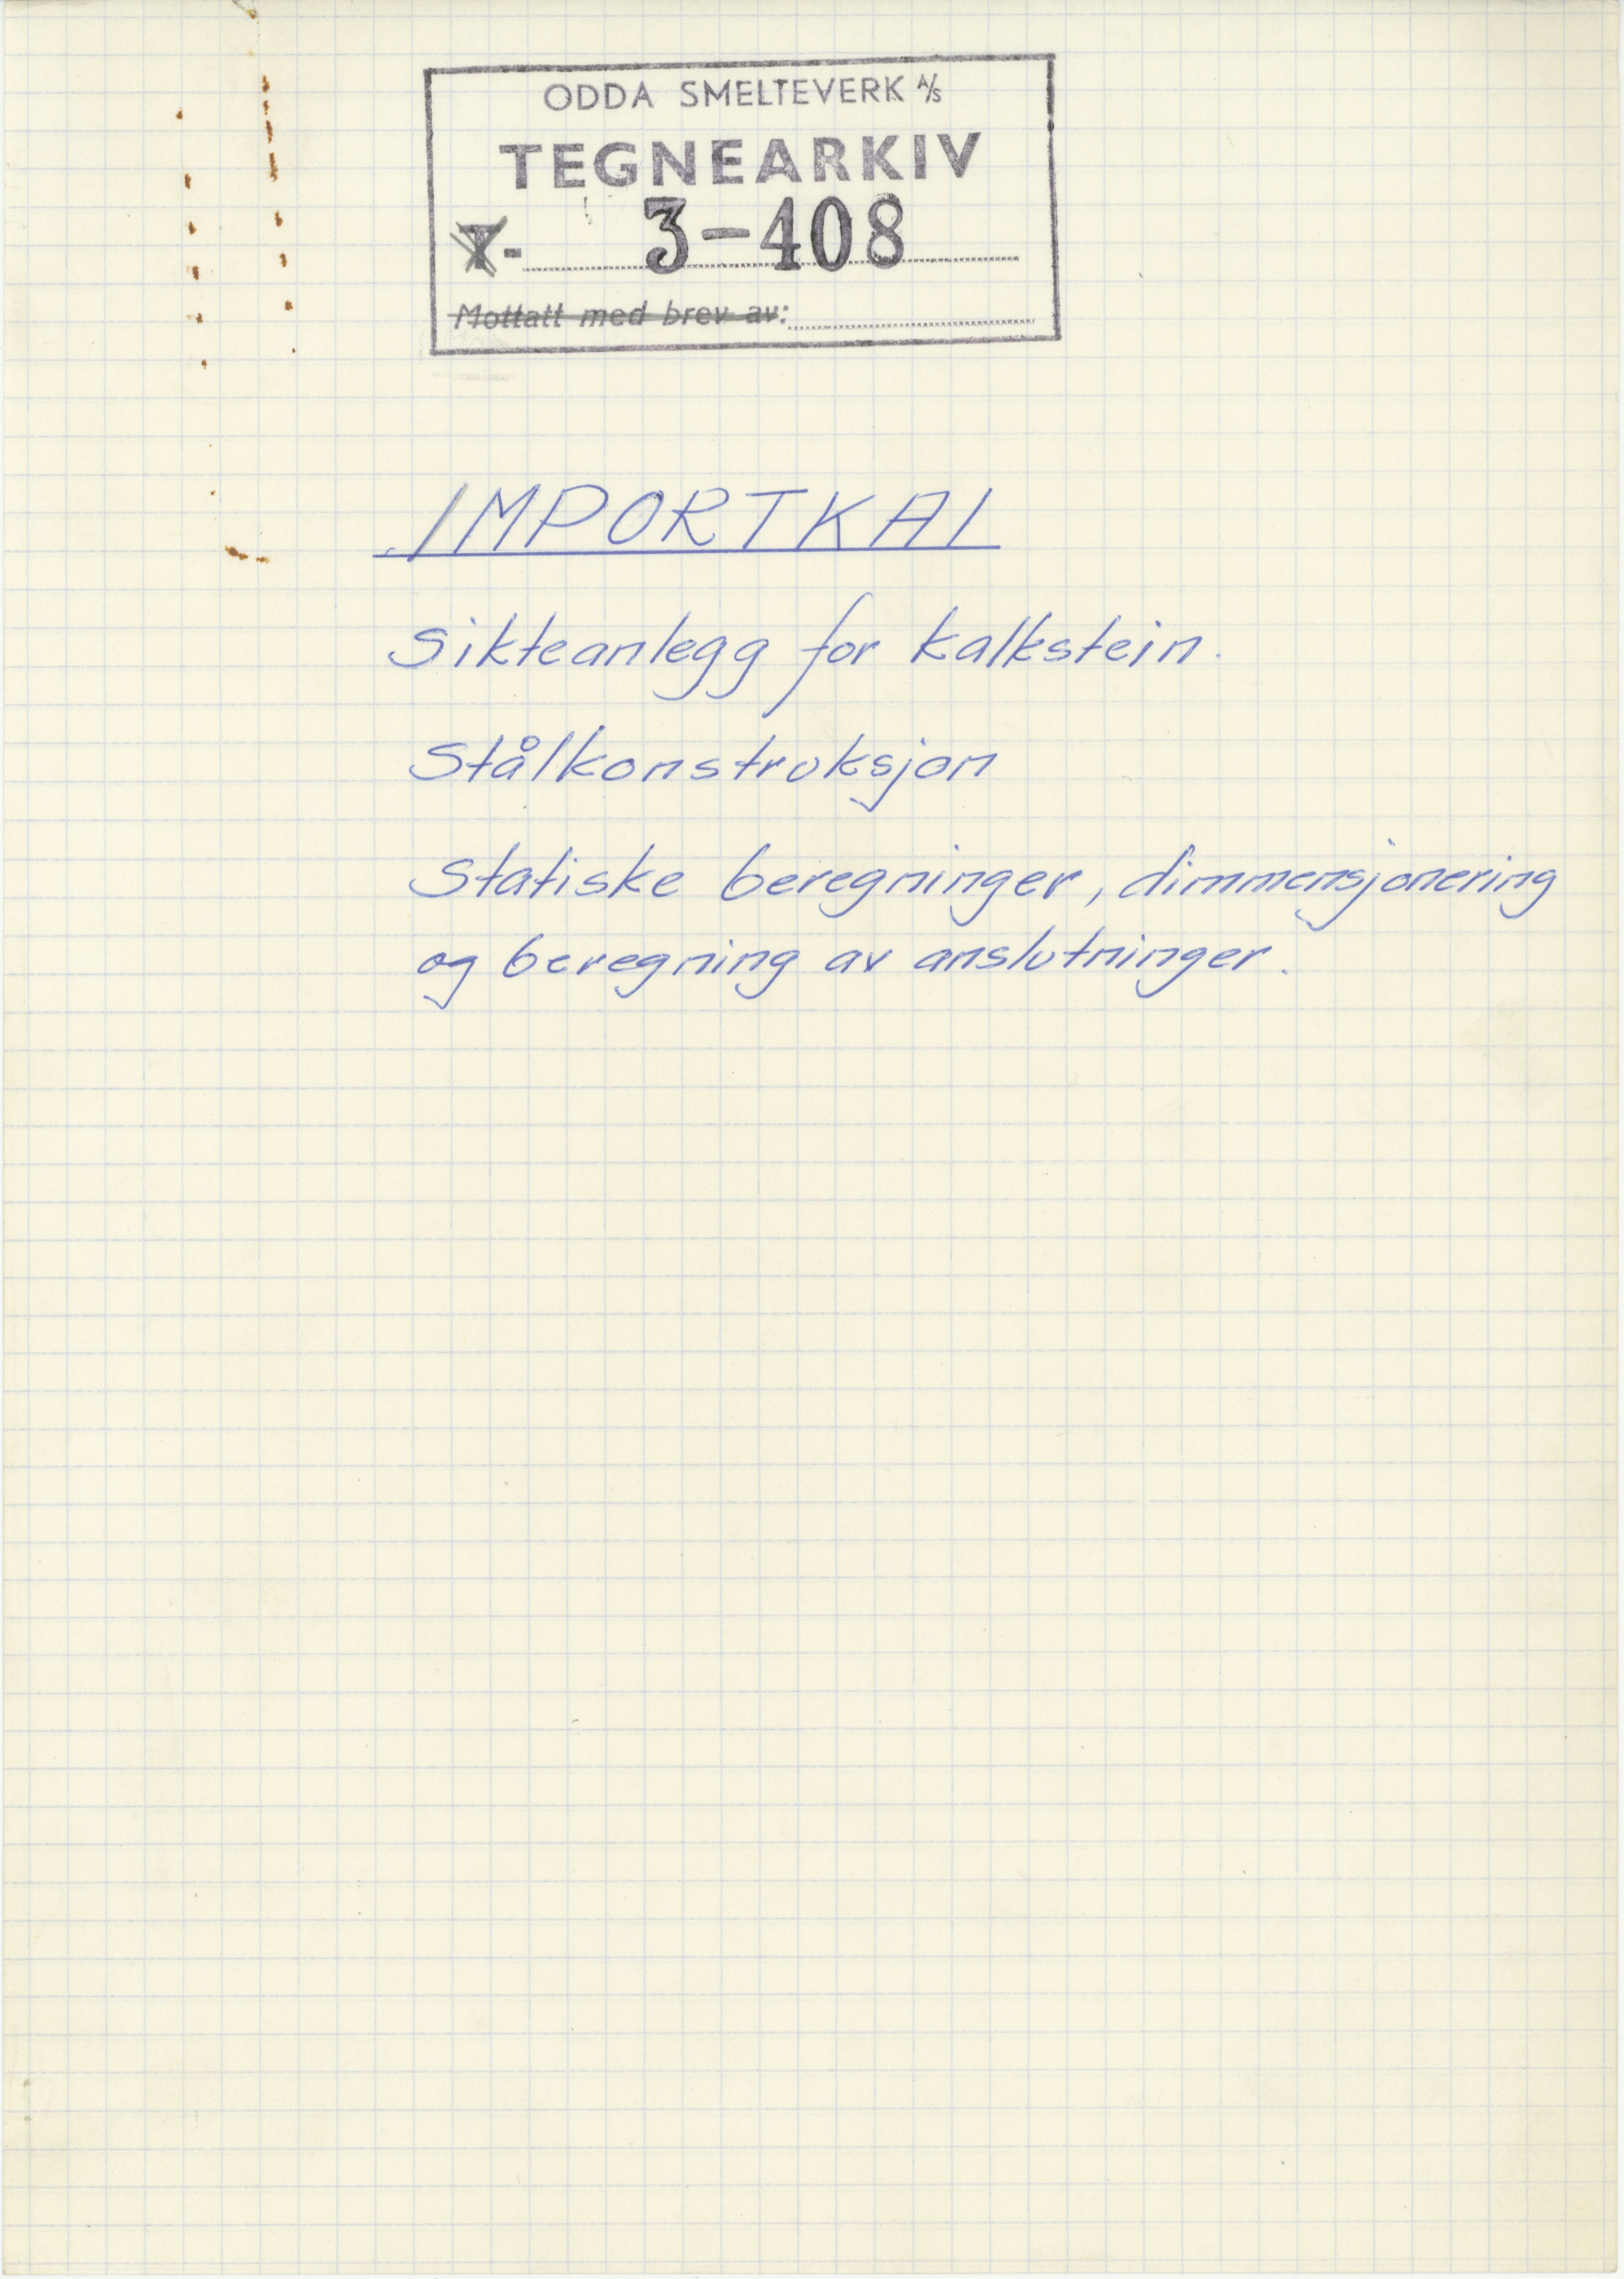 ODDA SMELTEVERK A/S
TEGNEARKIV
T- 3-408
Mottatt med brev av:
IMPORTKAI
Sikteanlegg for kalkstein.
Stålkonstruksjon
Statiske beregninger, dimmensjonering
og beregning av anslutninger.